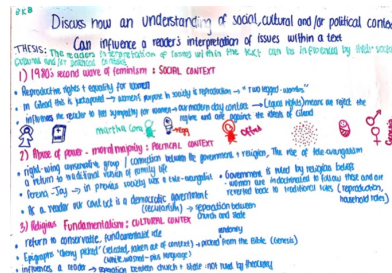 BKB
Discuss how an understanding of social, cultural and/or political contex
Can influence a reader's interpretation of issues within a text
THESIS: The readers interpretation of issues within the text can be influenced by their social
cultural and/or political contexts
1) 1980's second wave of feminism : SOCIAL CONTEXT
• Reproductive rights + equality for women
• In Gilead this is juxtaposed → women's purpose in society is reproduction → "two legged-wombs"
• influences the reader to have sympathy for women → our modern day context → (equal rights) means we reject the
regime and are against the ideals of Gilead
martha
Offred
2) Abuse of power - moral majority : POLITICAL CONTEXT
• right-wing conservative group / connection between the government + religion, The rise of tele-evangalism
a return to traditional vision of family life
• Serena-Joy → in previous society was a tele-evangalist
• As a reader our context is a democratic government
(secularism) → separation between
church and state
• Government is ruled by religious beliefs
- women are indoctrinated to follow these and are
reverted back to traditional roles (reproduction,
household roles)
Genesis
3) Religious Fundamentalism : CULTURAL CONTEX
• return to conservative, fundamentalist role
• Epigraphs 'cherry picked' (selected, taken out of context) → picked from the Bible (Genesis)
• influences a reader → separation between church + state not ruled by theocracy